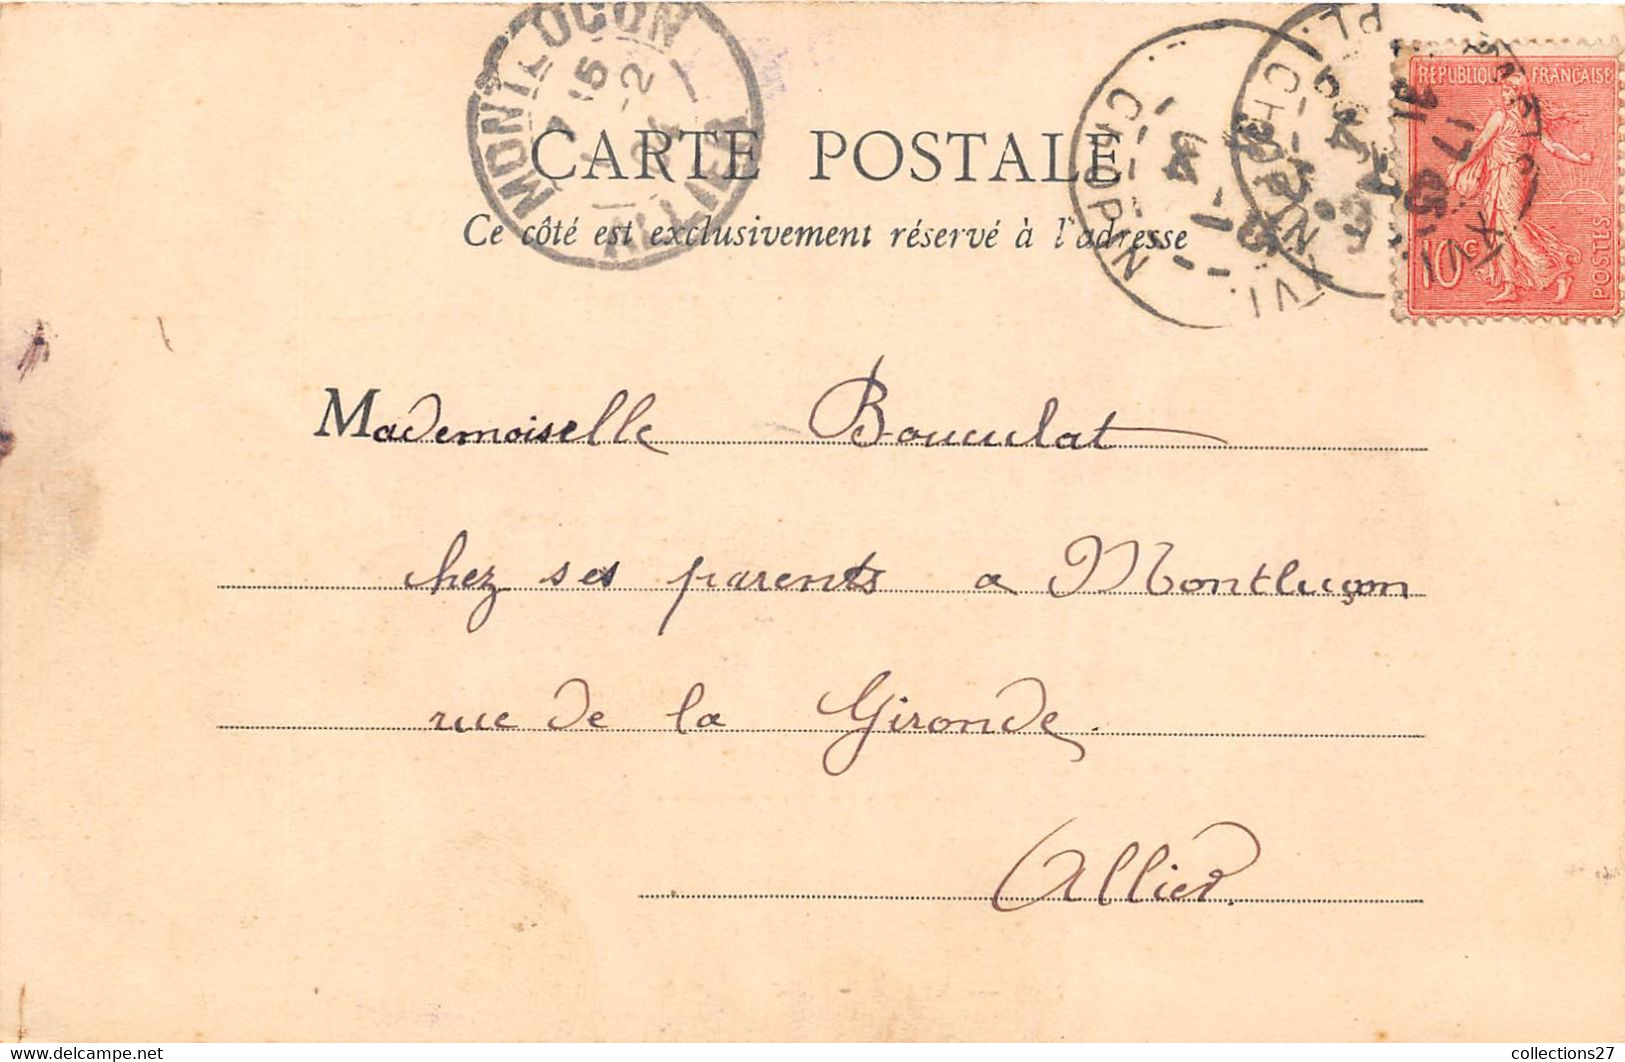 MONTLUCON
ALLIER
CARTE POSTALE
Ce côté est exclusivement réservé à l'adresse
CHOPIN
CHOPIN
RÉPUBLIQUE FRANÇAISE
10c
POSTES
Mademoiselle Bouculat
chez ses parents a Montluçon
rue de la Gironde.
Allier.
collections27